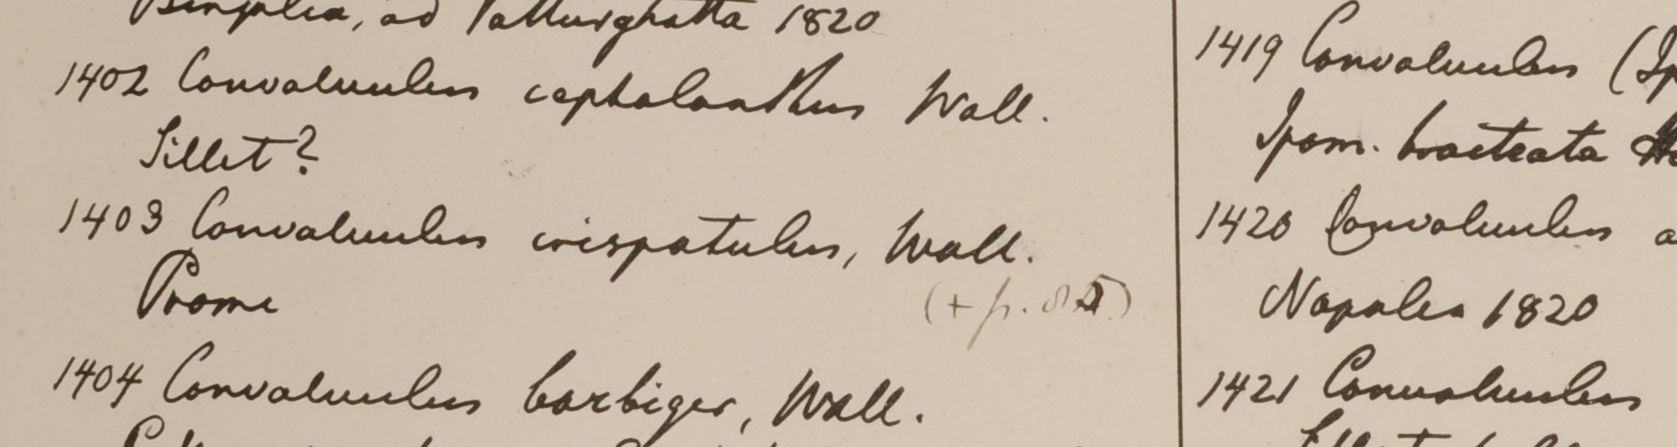 ad Patturghatta 1820
1402 Convolvulus cephalanthus Wall.
Sillet?
1403 Convolvulus crispatulus, Wall.
Prome
(+ p.
1404 Convolvulus barbiger, Wall.
1419 Convolvulus (Ip
Ipom. bracteata
1420 Convolvulus a
Napalea 1820
1421 Convolvulus